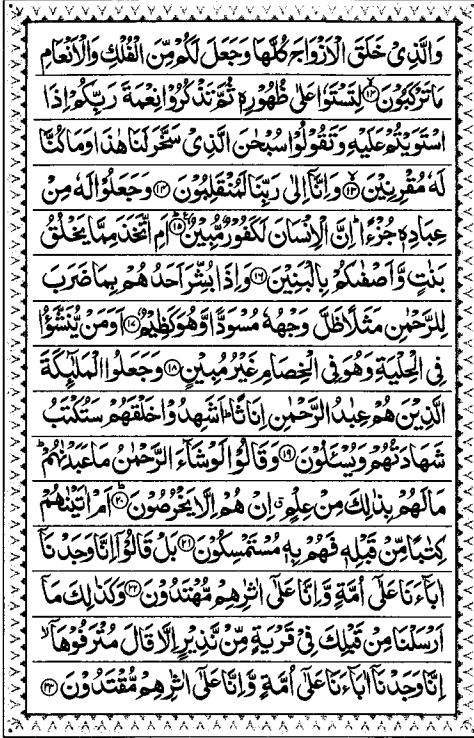 وَالَّذِیۡ خَلَقَ الۡاَزۡوَاجَ کُلَّهَا وَجَعَلَ لَکُمۡ مِّنَ الۡفُلۡکِ وَالۡاَنۡعَامِ
مَا تَرۡکَبُوۡنَ ﴿۱۲﴾ لِتَسۡتَوٗا عَلٰی ظُهُوۡرِهٖ ثُمَّ تَذۡکُرُوۡا نِعۡمَةَ رَبِّکُمۡ اِذَا
اسۡتَوَیۡتُمۡ عَلَیۡهِ وَتَقُوۡلُوۡا سُبۡحٰنَ الَّذِیۡ سَخَّرَ لَنَا هٰذَا وَمَا کُنَّا
لَهٗ مُقۡرِنِیۡنَ ﴿۱۳﴾ وَاِنَّاۤ اِلٰی رَبِّنَا لَمُنۡقَلِبُوۡنَ ﴿۱۴﴾ وَجَعَلُوۡا لَهٗ مِنۡ
عِبَادِهٖ جُزۡءًا ؕ اِنَّ الۡاِنۡسَانَ لَکَفُوۡرٌ مُّبِیۡنٌ ﴿۱۵﴾ اَمِ اتَّخَذَ مِمَّا یَخۡلُقُ
بَنٰتٍ وَّاَصۡفٰکُمۡ بِالۡبَنِیۡنَ ﴿۱۶﴾ وَاِذَا بُشِّرَ اَحَدُهُمۡ بِمَا ضَرَبَ
لِلرَّحۡمٰنِ مَثَلًا ظَلَّ وَجۡهُهٗ مُسۡوَدًّا وَّهُوَ کَظِیۡمٌ ﴿۱۷﴾ اَوَمَنۡ یُّنَشَّؤُا
فِی الۡحِلۡیَةِ وَهُوَ فِی الۡخِصَامِ غَیۡرُ مُبِیۡنٍ ﴿۱۸﴾ وَجَعَلُوا الۡمَلٰٓئِکَةَ
الَّذِیۡنَ هُمۡ عِبٰدُ الرَّحۡمٰنِ اِنَاثًا ؕ اَشَهِدُوۡا خَلۡقَهُمۡ ؕ سَتُکۡتَبُ
شَهَادَتُهُمۡ وَیُسۡـَٔلُوۡنَ ﴿۱۹﴾ وَقَالُوۡا لَوۡ شَآءَ الرَّحۡمٰنُ مَا عَبَدۡنٰهُمۡ ؕ
مَا لَهُمۡ بِذٰلِکَ مِنۡ عِلۡمٍ ٭ اِنۡ هُمۡ اِلَّا یَخۡرُصُوۡنَ ﴿۲۰﴾ اَمۡ اٰتَیۡنٰهُمۡ
کِتٰبًا مِّنۡ قَبۡلِهٖ فَهُمۡ بِهٖ مُسۡتَمۡسِکُوۡنَ ﴿۲۱﴾ بَلۡ قَالُوۡۤا اِنَّا وَجَدۡنَاۤ
اٰبَآءَنَا عَلٰۤی اُمَّةٍ وَّاِنَّا عَلٰۤی اٰثٰرِهِمۡ مُّهۡتَدُوۡنَ ﴿۲۲﴾ وَکَذٰلِکَ مَاۤ
اَرۡسَلۡنَا مِنۡ قَبۡلِکَ فِیۡ قَرۡیَةٍ مِّنۡ نَّذِیۡرٍ اِلَّا قَالَ مُتۡرَفُوۡهَاۤ ۙ
اِنَّا وَجَدۡنَاۤ اٰبَآءَنَا عَلٰۤی اُمَّةٍ وَّاِنَّا عَلٰۤی اٰثٰرِهِمۡ مُّقۡتَدُوۡنَ ﴿۲۳﴾